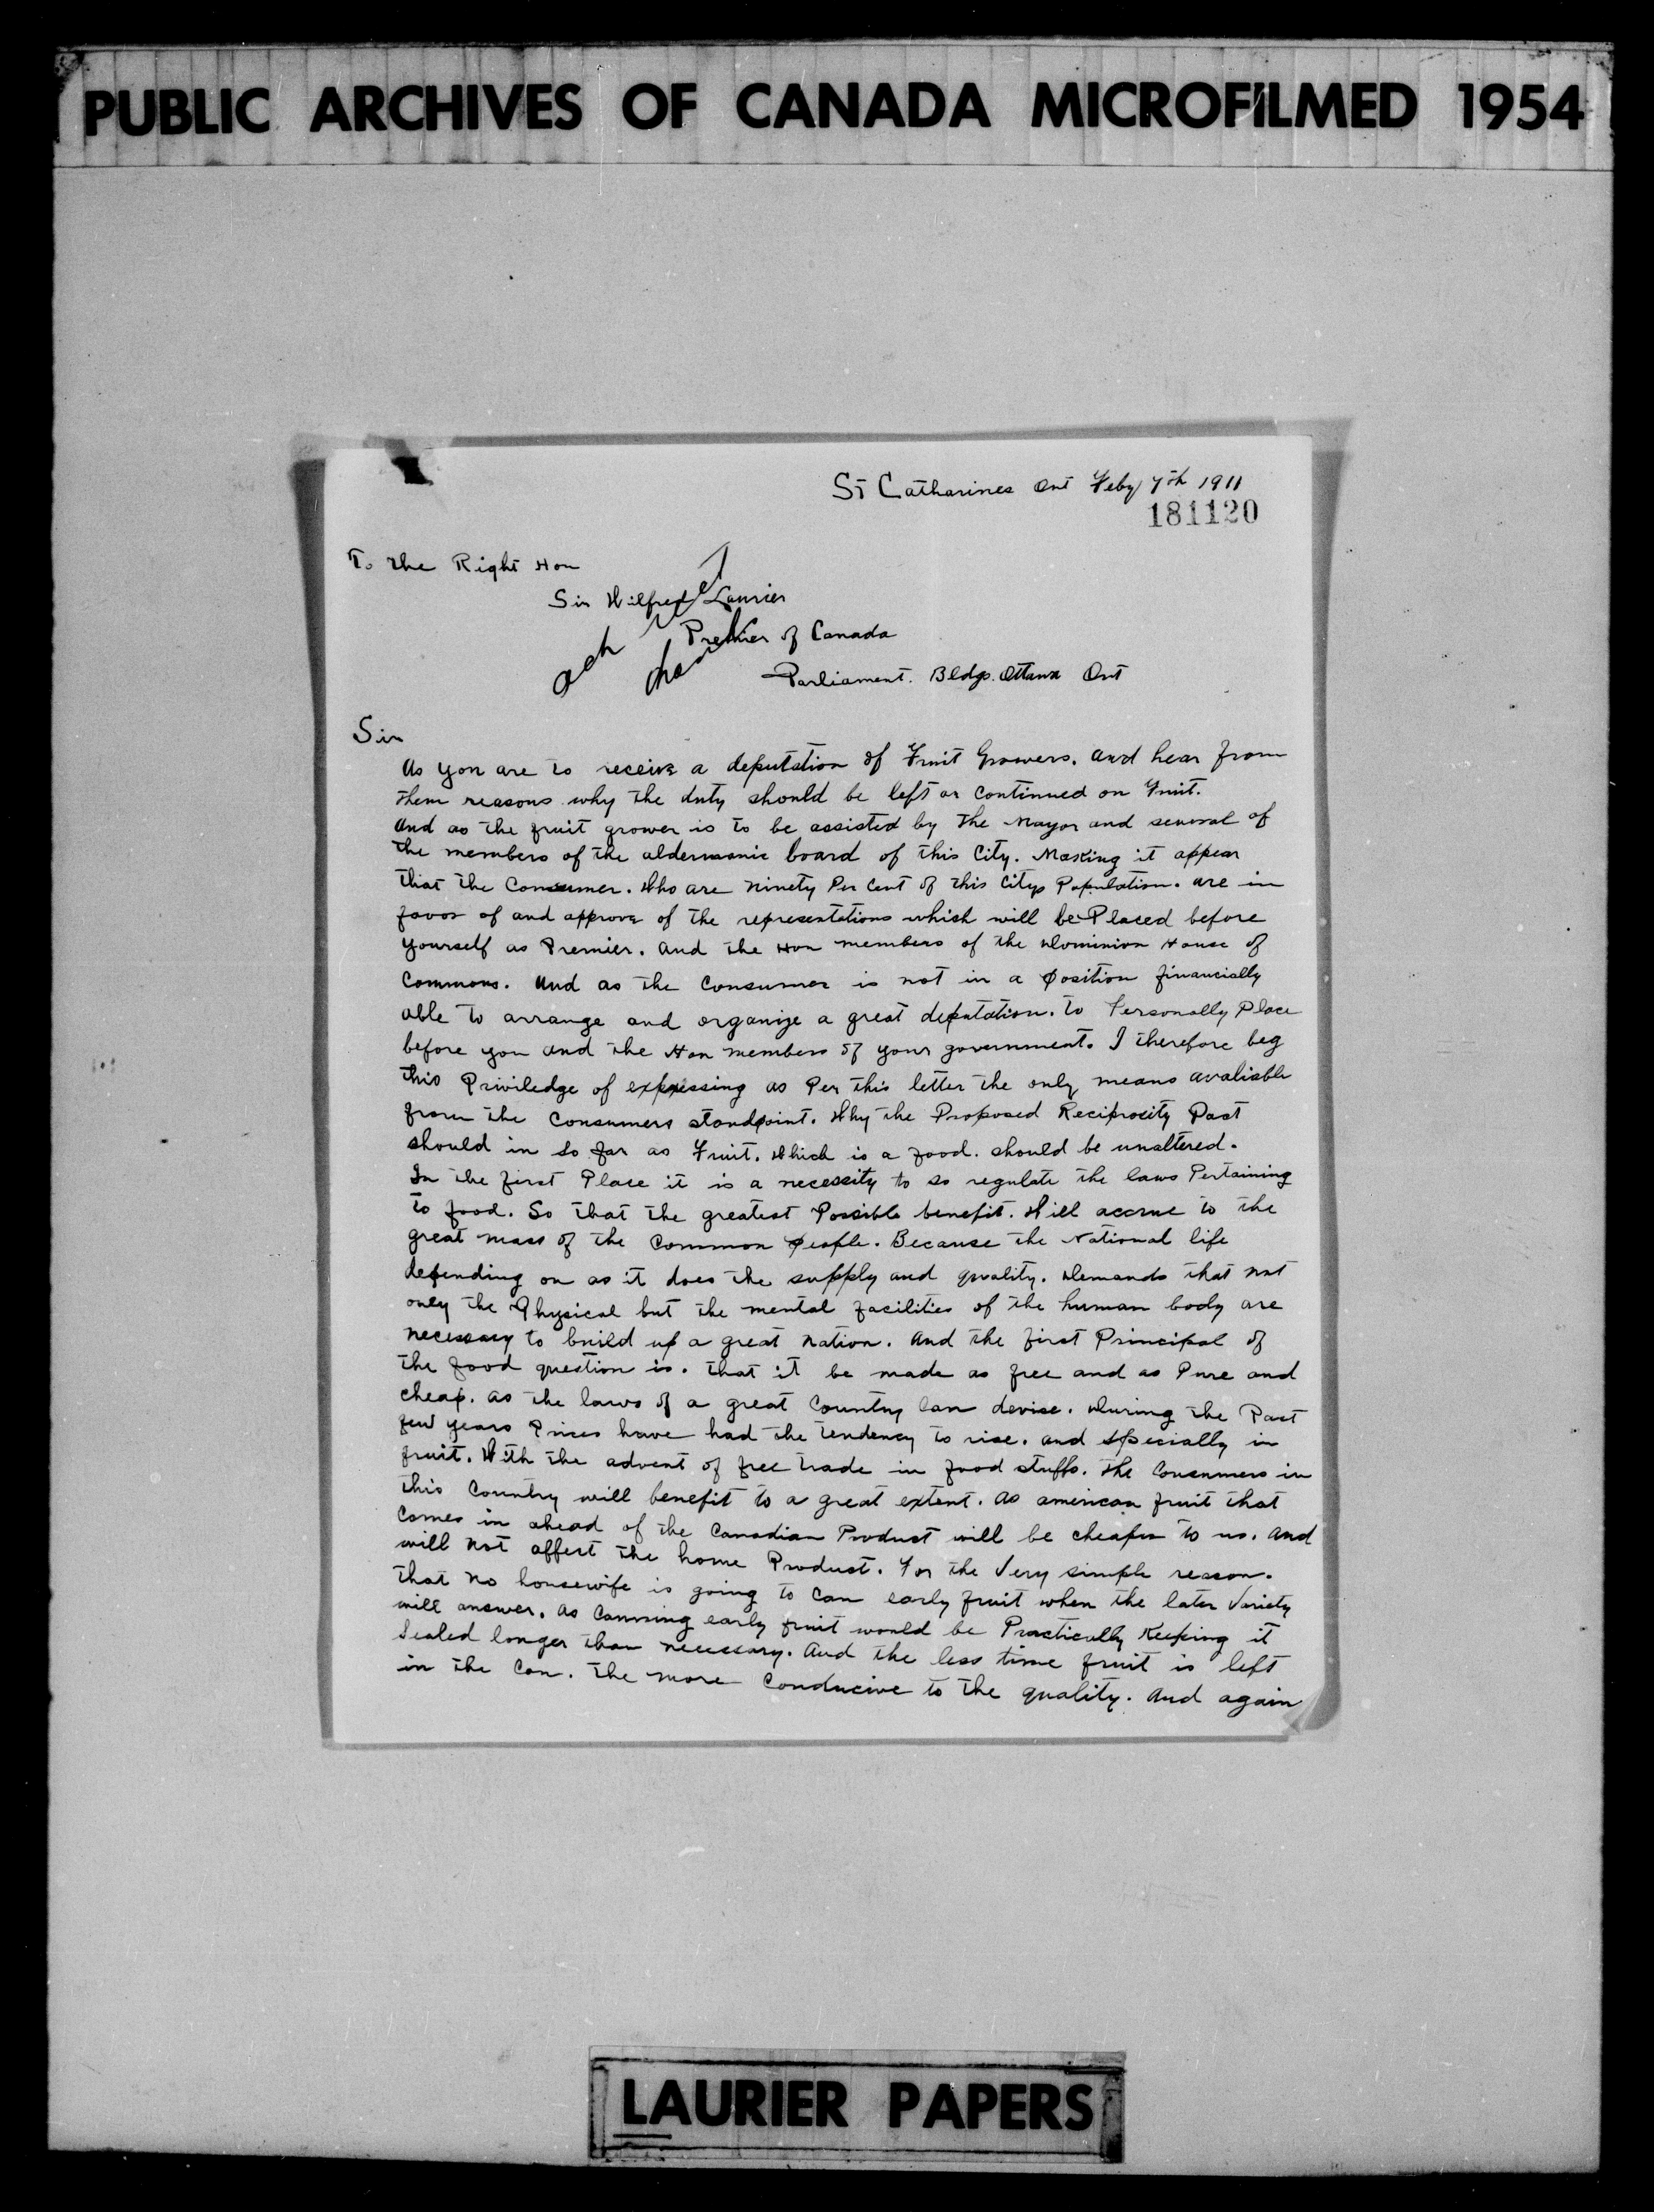 PUBLIC ARCHIVES OF CANADA MICROFILMED 1954
St Catharines Ont Feby 7th 1911
181120
To the Right Hon
Sir Wilfred Laurier
Premier of Canada
Parliament. Bldgs. Ottawa Ont
ack
thank
Sir
As you are to receive a deputation of Fruit Growers. and hear from
them reasons why the duty should be left or continued on Fruit.
And as the fruit grower is to be assisted by the Mayor and several of
the members of the aldermanic board of this City. Making it appear
that the Consumer. Who are ninety Per Cent of this Citys Population. are in
favor of and approve of the representations which will be Placed before
yourself as Premier. and the Hon members of the Dominion House of
Commons. And as the Consumer is not in a position financially
able to arrange and organize a great deputation. to Personally Place
before you and the Hon members of your government. I therefore beg
this Priviledge of expressing as Per this letter the only means avaliable
from the Consumers standpoint. Why the Proposed Reciprocity Pact
should in so far as Fruit. Which is a food. should be unaltered.
In the first Place it is a necessity to so regulate the laws Pertaining
to food. So that the greatest Possible benefit. Will accrue to the
great mass of the Common people. Because the National life
depending on as it does the supply and quality. Demands that not
only the Physical but the mental facilities of the human body are
necessary to build up a great nation. And the first Principal of
the food question is. that it be made as free and as Pure and
cheap. as the laws of a great Country can devise. During the Past
few years Prices have had the tendency to rise. and specially in
fruit. With the advent of free trade in food stuffs. the Consumers in
this Country will benefit to a great extent. as american fruit that
Comes in ahead of the Canadian Product will be cheaper to us. and
will not affect the home Product. For the Very simple reason.
that no housewife is going to can early fruit when the later Variety
will answer. as Canning early fruit would be Practically Keeping it
Sealed longer than necessary. And the less time fruit is left
in the Can. the more Conducive to the quality. And again
LAURIER PAPERS